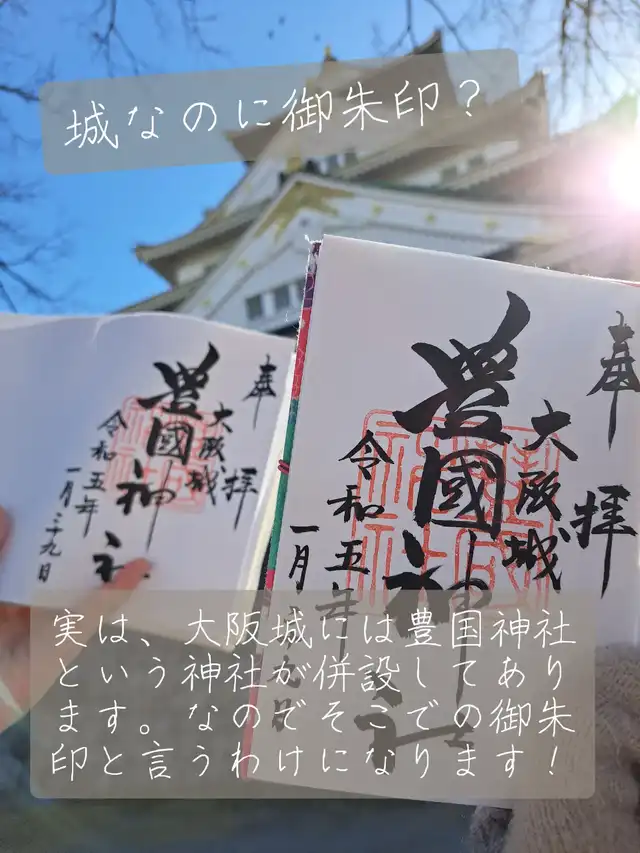 城なのに御朱印？
奉拝
大阪城
豊國神社
令和五年
一月二十九日
奉拝
大阪城
豊國神
令和五年
一月
実は、大阪城には豊国神社
という神社が併設してあり
ます。なのでそこでの御朱
印と言うわけになります！